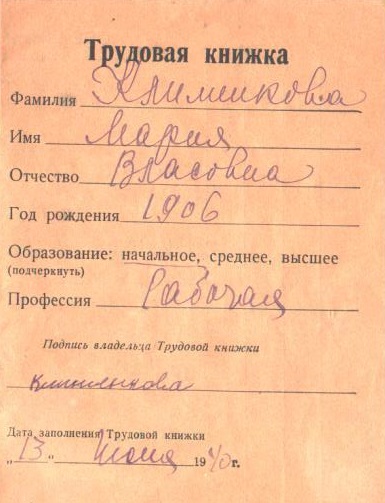 Трудовая книжка
Фамилия Клименкова
Имя Мария
Отчество Власовна
Год рождения 1906
Образование: начальное, среднее, высшее
(подчеркнуть)
Профессия Рабочая
Подпись владельца Трудовой книжки
Клименкова
Дата заполнения Трудовой книжки
„13“ Июня 1940г.